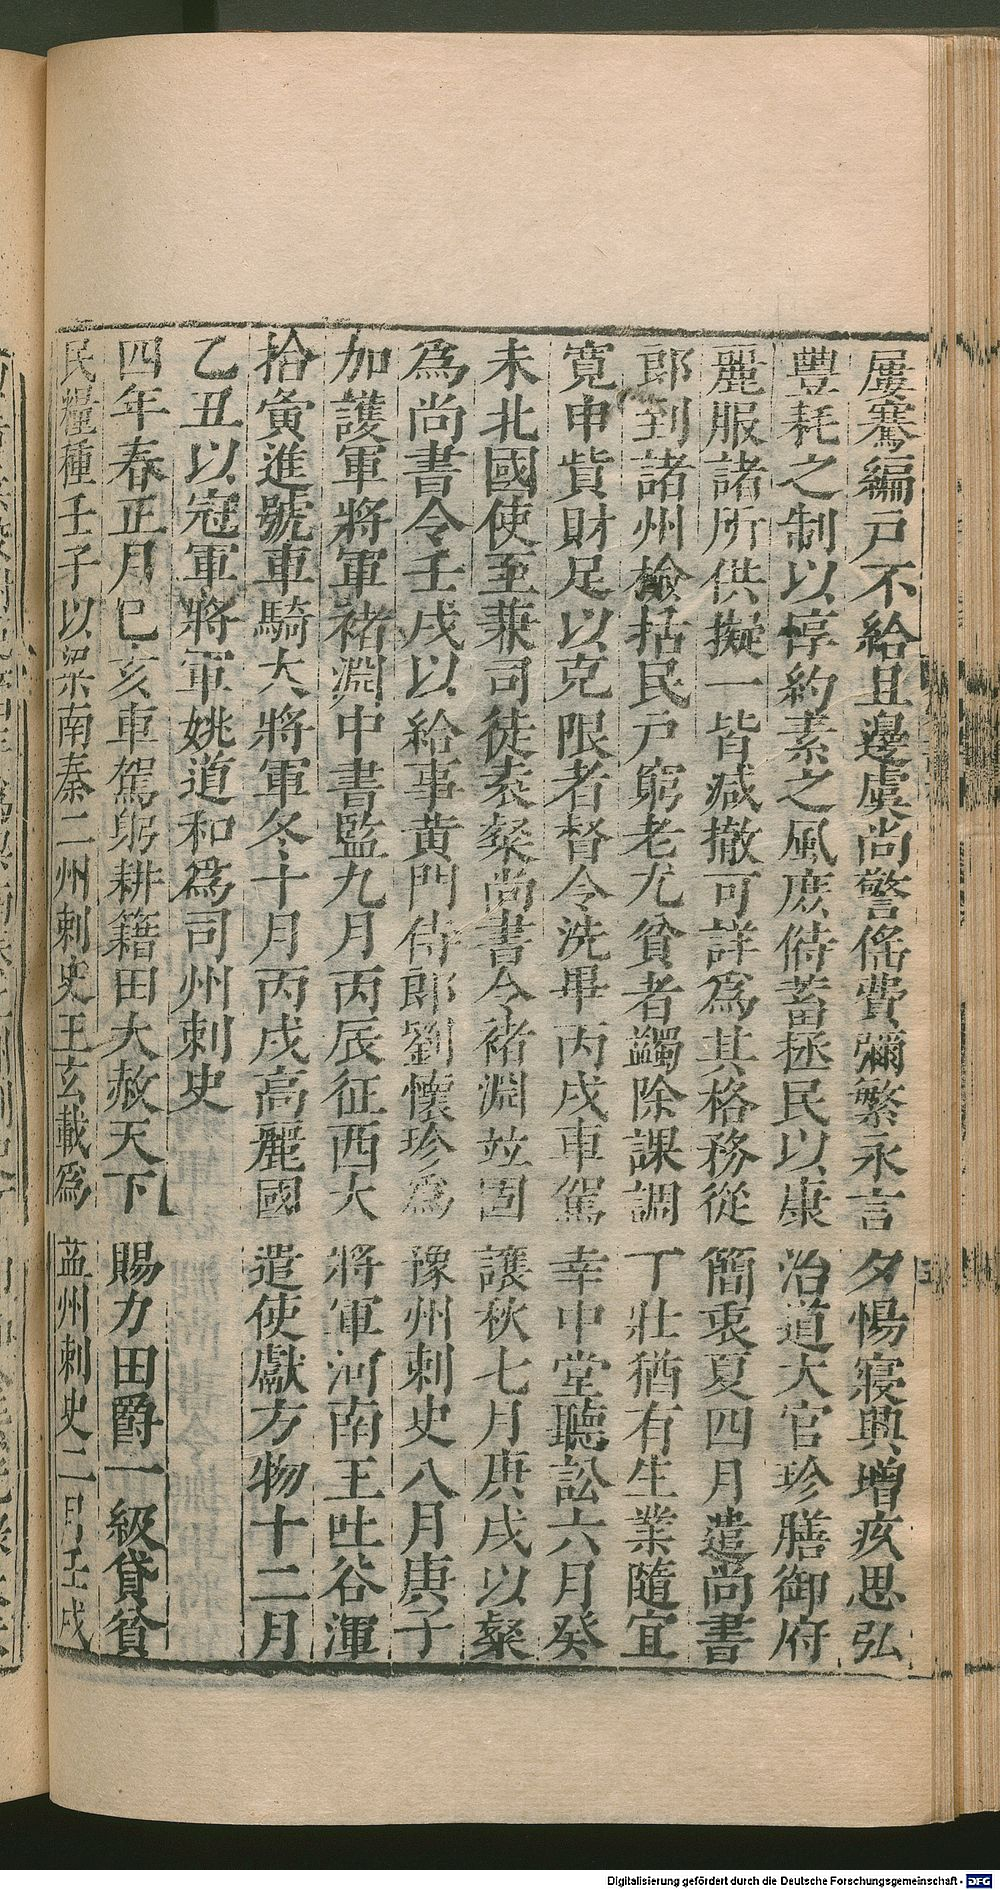 屢騫編戸不給且邊虞尚警徭費彌繁永言夕惕寝興增疚思弘
豐耗之制以惇約素之風庶偫蓄拯民以康治道大官珍膳御府
麗服諸所供擬一皆减撤可詳爲其格務從簡衷夏四月遣尚書
郎到諸州檢括民戸窮老尤貧者蠲除課調丁壯猶有生業隨宜
寛申貲財足以充限者督令洗畢丙戌車駕幸中堂聽訟六月癸
未北國使至兼司徒袁粲尚書令褚淵竝固讓秋七月庚戌以粲
爲尚書令壬戌以給事黄門侍郎劉懷珍爲豫州刺史八月庚子
加護軍將軍褚淵中書監九月丙辰征西大將軍河南王吐谷渾
拾寅進號車騎大將軍冬十月丙戌高麗國遣使獻方物十二月
乙丑以冠軍將軍姚道和爲司州刺史
四年春正月已亥車駕躬耕籍田大赦天下賜力田爵一級貸貧
民糧種壬子以梁南秦二州刺史王玄載爲益州刺史二月壬戌
Digitalisierung gefördert durch die Deutsche Forschungsgemeinschaft - DFG